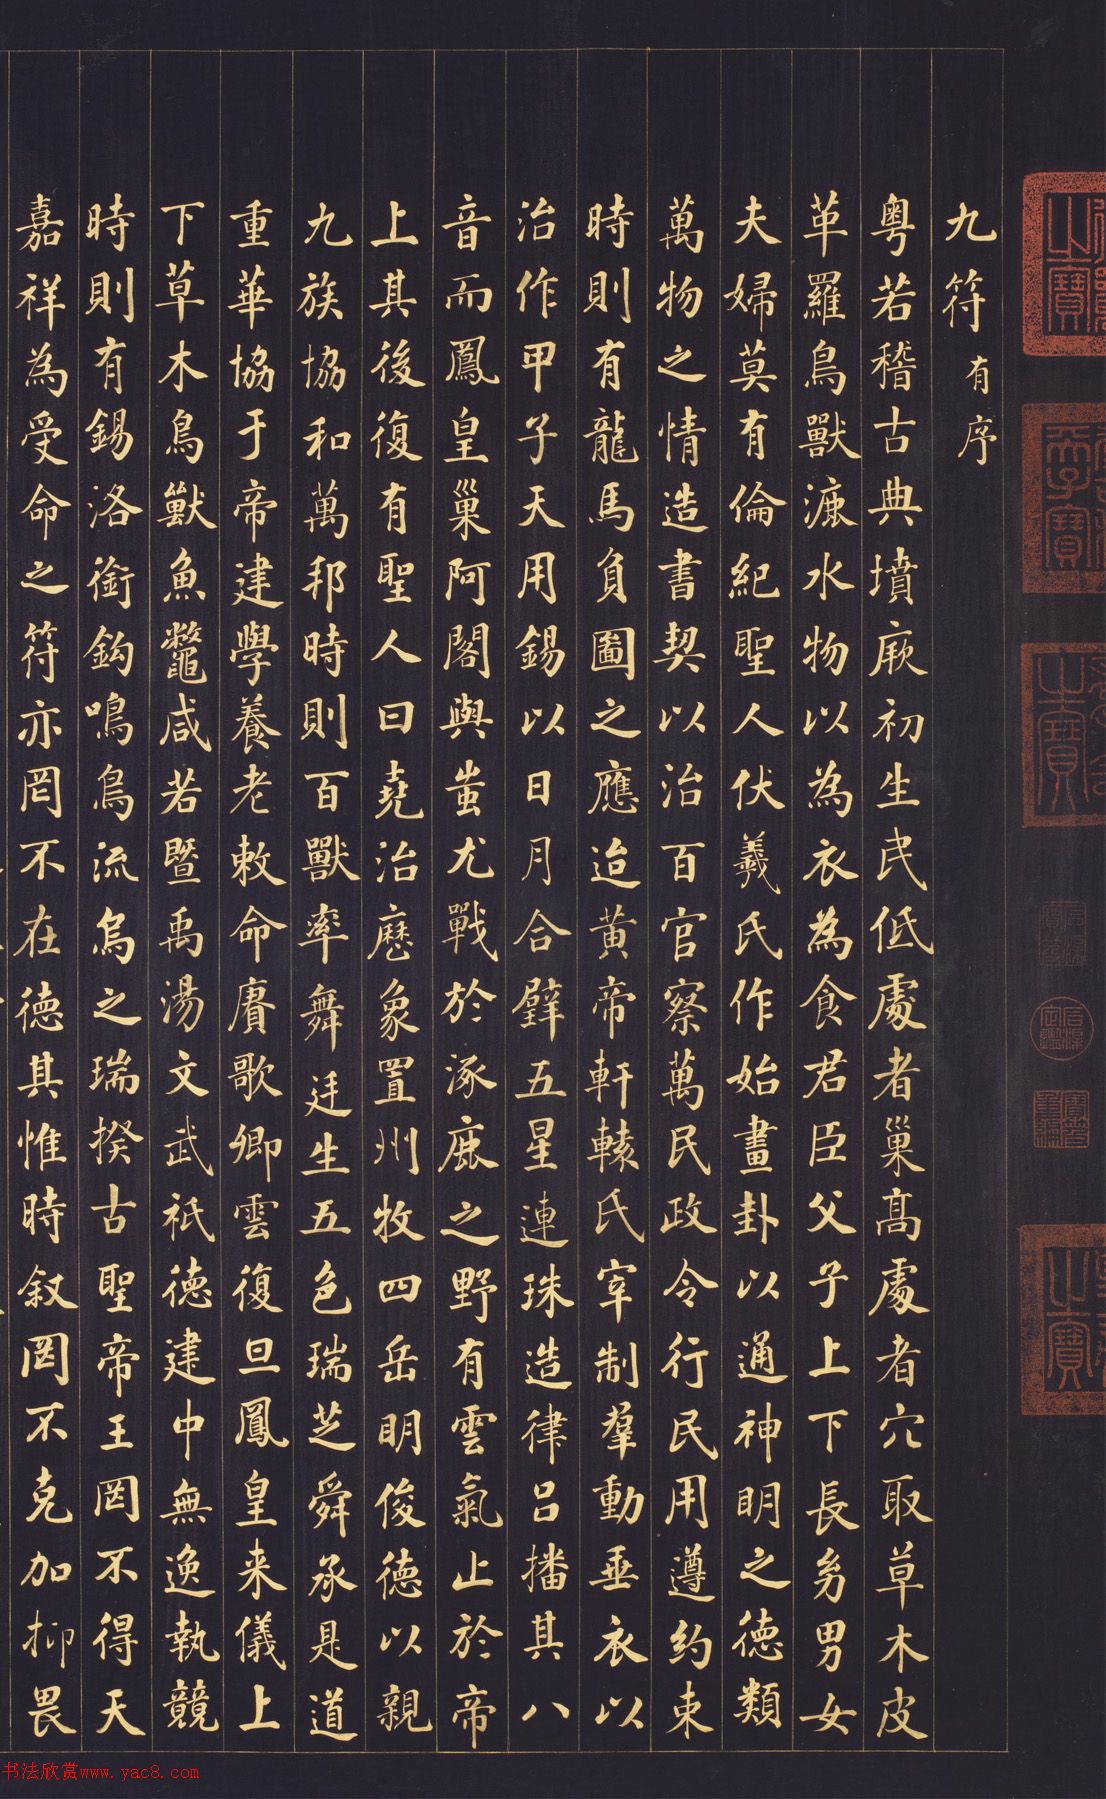 九符有序
粵若稽古典墳厥初生民低處者巢高處者穴取草木皮
革羅鳥獸漉水物以為衣為食君臣父子上下長幼男女
夫婦莫有倫紀聖人伏羲氏作始畫卦以通神明之德類
萬物之情造書契以治百官察萬民政令行民用遵約束
時則有龍馬負圖之應迨黃帝軒轅氏宰制羣動垂衣以
治作甲子天用錫以日月合璧五星連珠造律呂播其八
音而鳳皇巢阿閣與蚩尤戰於涿鹿之野有雲氣止於帝
上其後復有聖人曰堯治曆象置州牧四岳明俊德以親
九族協和萬邦時則百獸率舞廷生五色瑞芝舜承是道
重華協于帝建學養老敕命賡歌卿雲復旦鳳皇来儀上
下草木鳥獸魚鼈咸若暨禹湯文武祗德建中無逸執競
時則有錫洛銜鈎鳴鳥流烏之瑞揆古聖帝王罔不得天
嘉祥為受命之符亦罔不在德其惟時叙罔不克加抑畏
之寶
寶
之寶
之寶
书法欣赏www.yac8.com